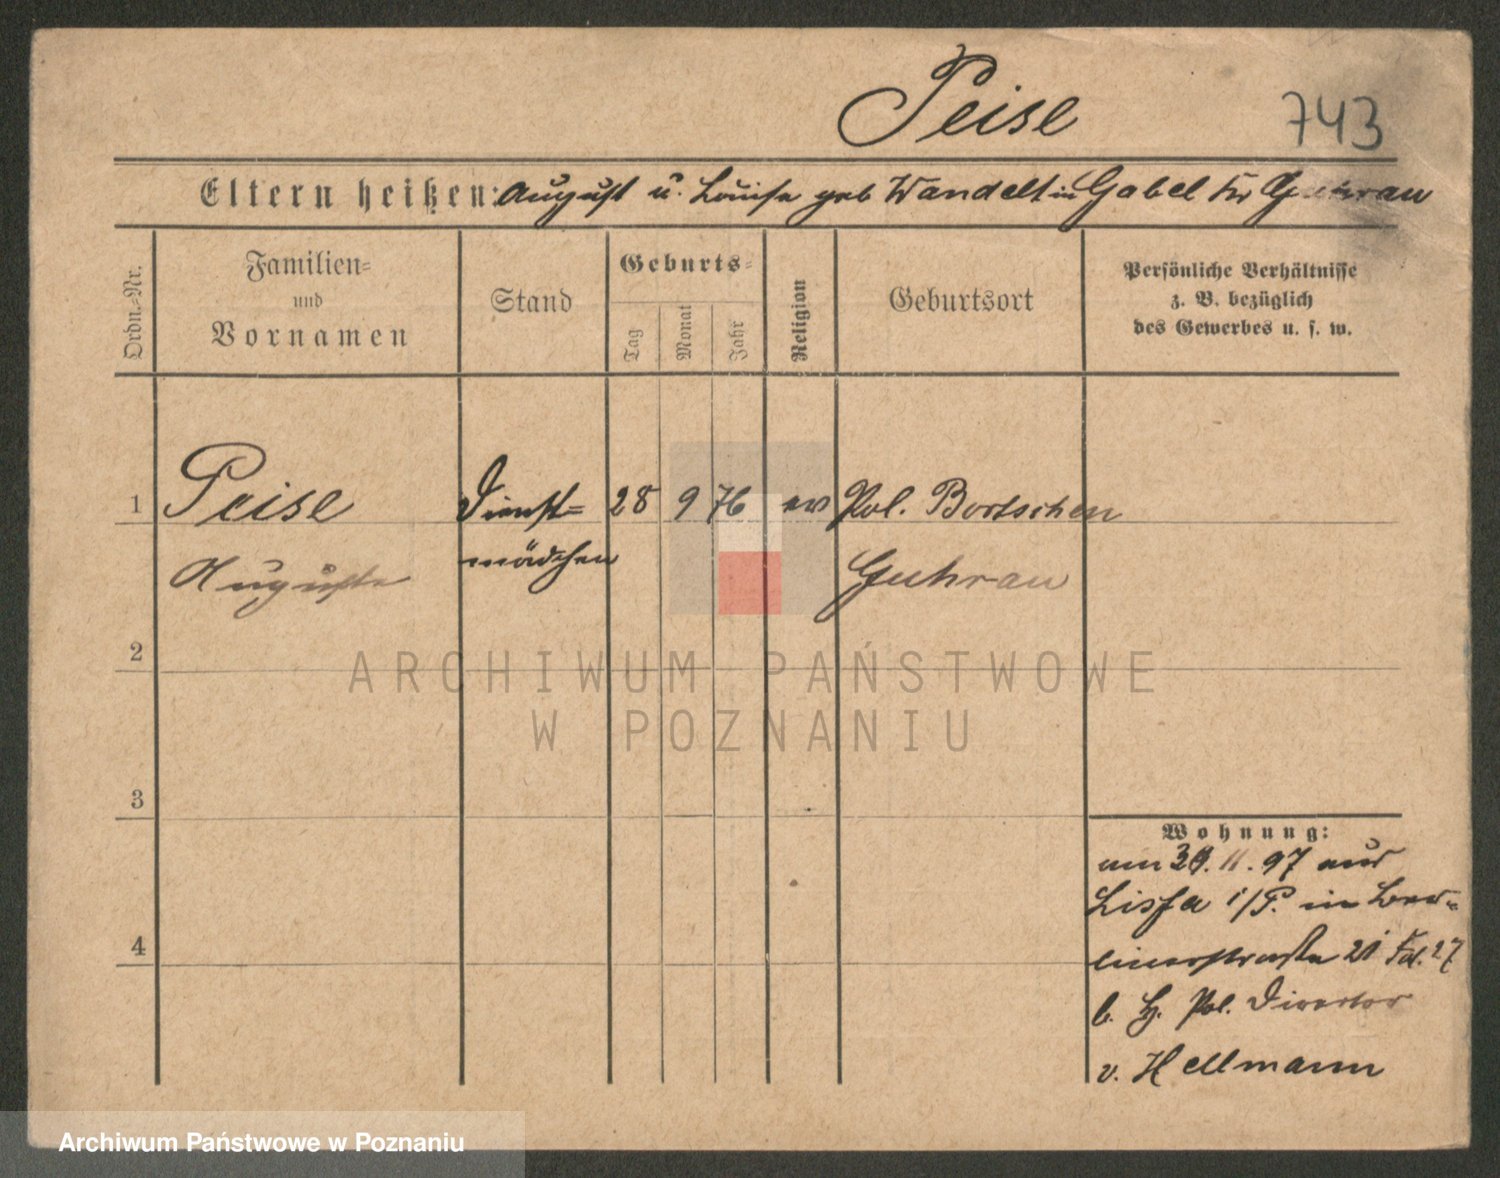 Peise 743
Eltern heißen: August u. Louise geb Wandelt in Gabel Kr Guhrau
Ordn.-Nr.
Familien-
und
Vornamen
Stand
Geburts-
Tag
Monat
Jahr
Religion
Geburtsort
Persönliche Verhältnisse
z. B. bezüglich
des Gewerbes u. s. w.
1 Peise Dienst= 28 9 76 ev Pol. Bortschen
Auguste mädchen Guhrau
2
ARCHIWUM PAŃSTWOWE
W POZNANIU
3
4
Wohnung:
am 11. 97 aus
Lissa i/P. in Ber=
linerstraße 21 27
b. H. Pol. Director
v. Hellmann
Archiwum Państwowe w Poznaniu